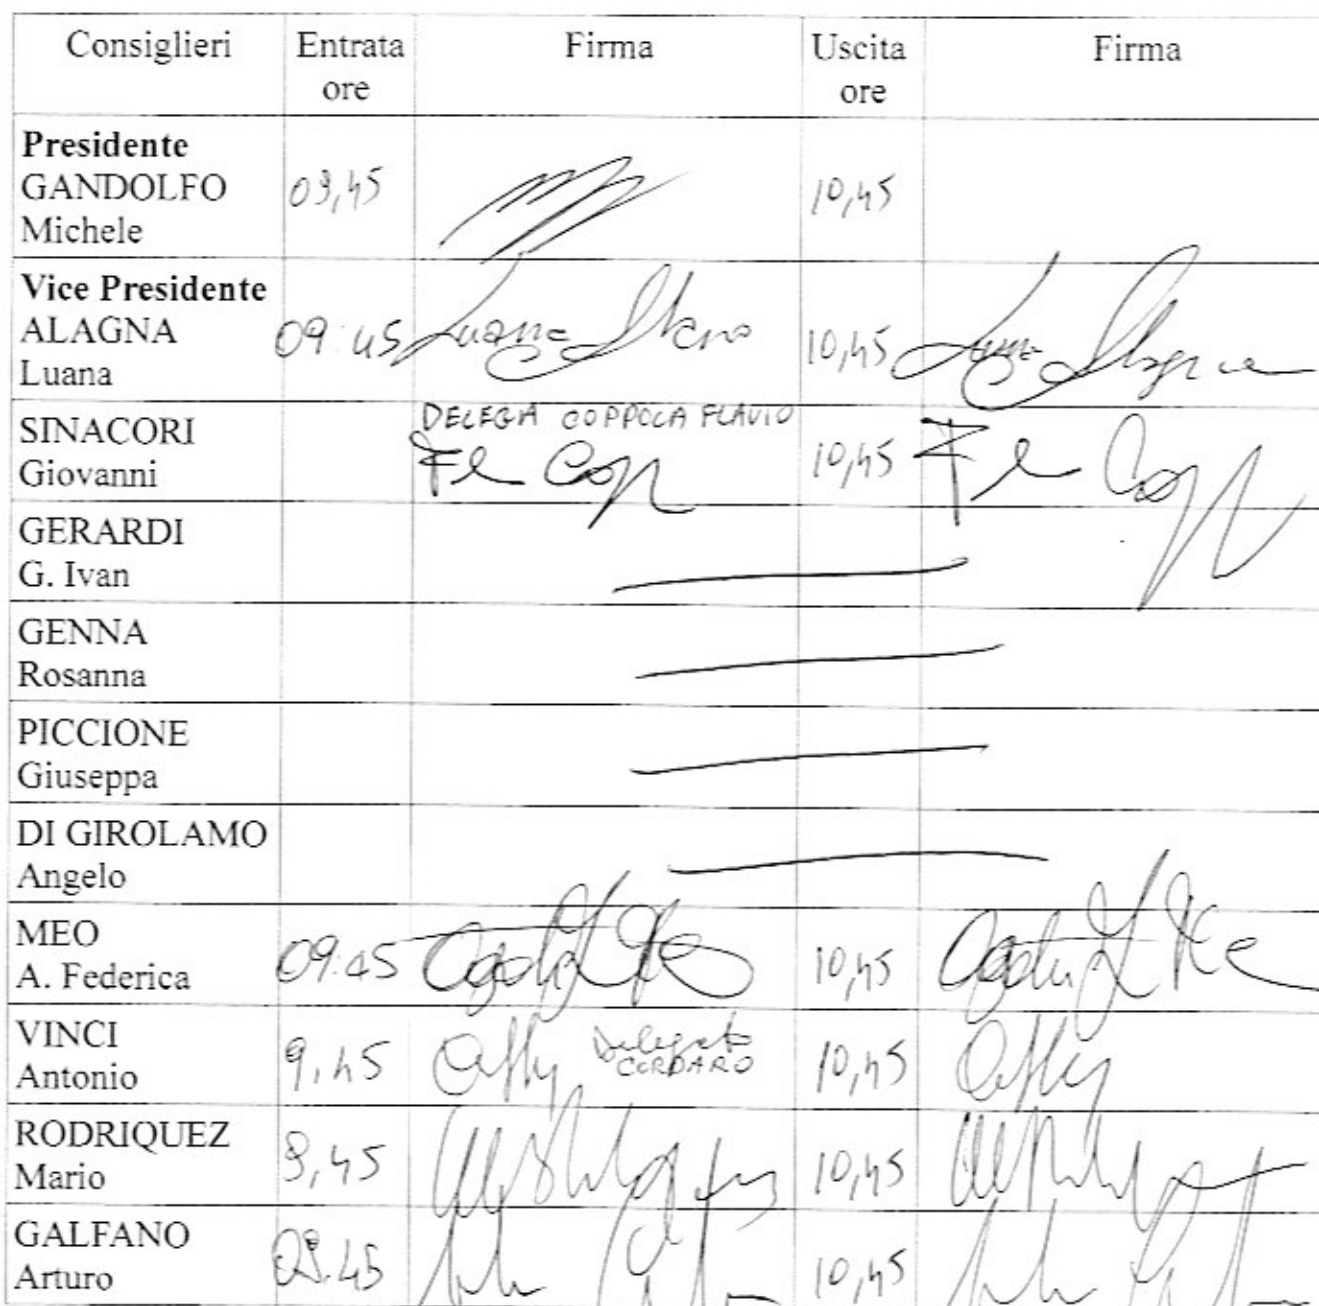 Consiglieri Entrata ore Firma Uscita ore Firma
Presidente
GANDOLFO
Michele
09,45 10,45
Vice Presidente
ALAGNA
Luana
09:45 Luana Alagna 10,45 Luana Alagna
DELEGA COPPOLA FLAVIO
SINACORI
Giovanni
10,45
GERARDI
G. Ivan
GENNA
Rosanna
PICCIONE
Giuseppa
DI GIROLAMO
Angelo
MEO
A. Federica
09:45 10,45
VINCI
Antonio
9,45 Delegato
CORDARO
10,45
RODRIQUEZ
Mario
9,45 10,45
GALFANO
Arturo
09.45 10,45